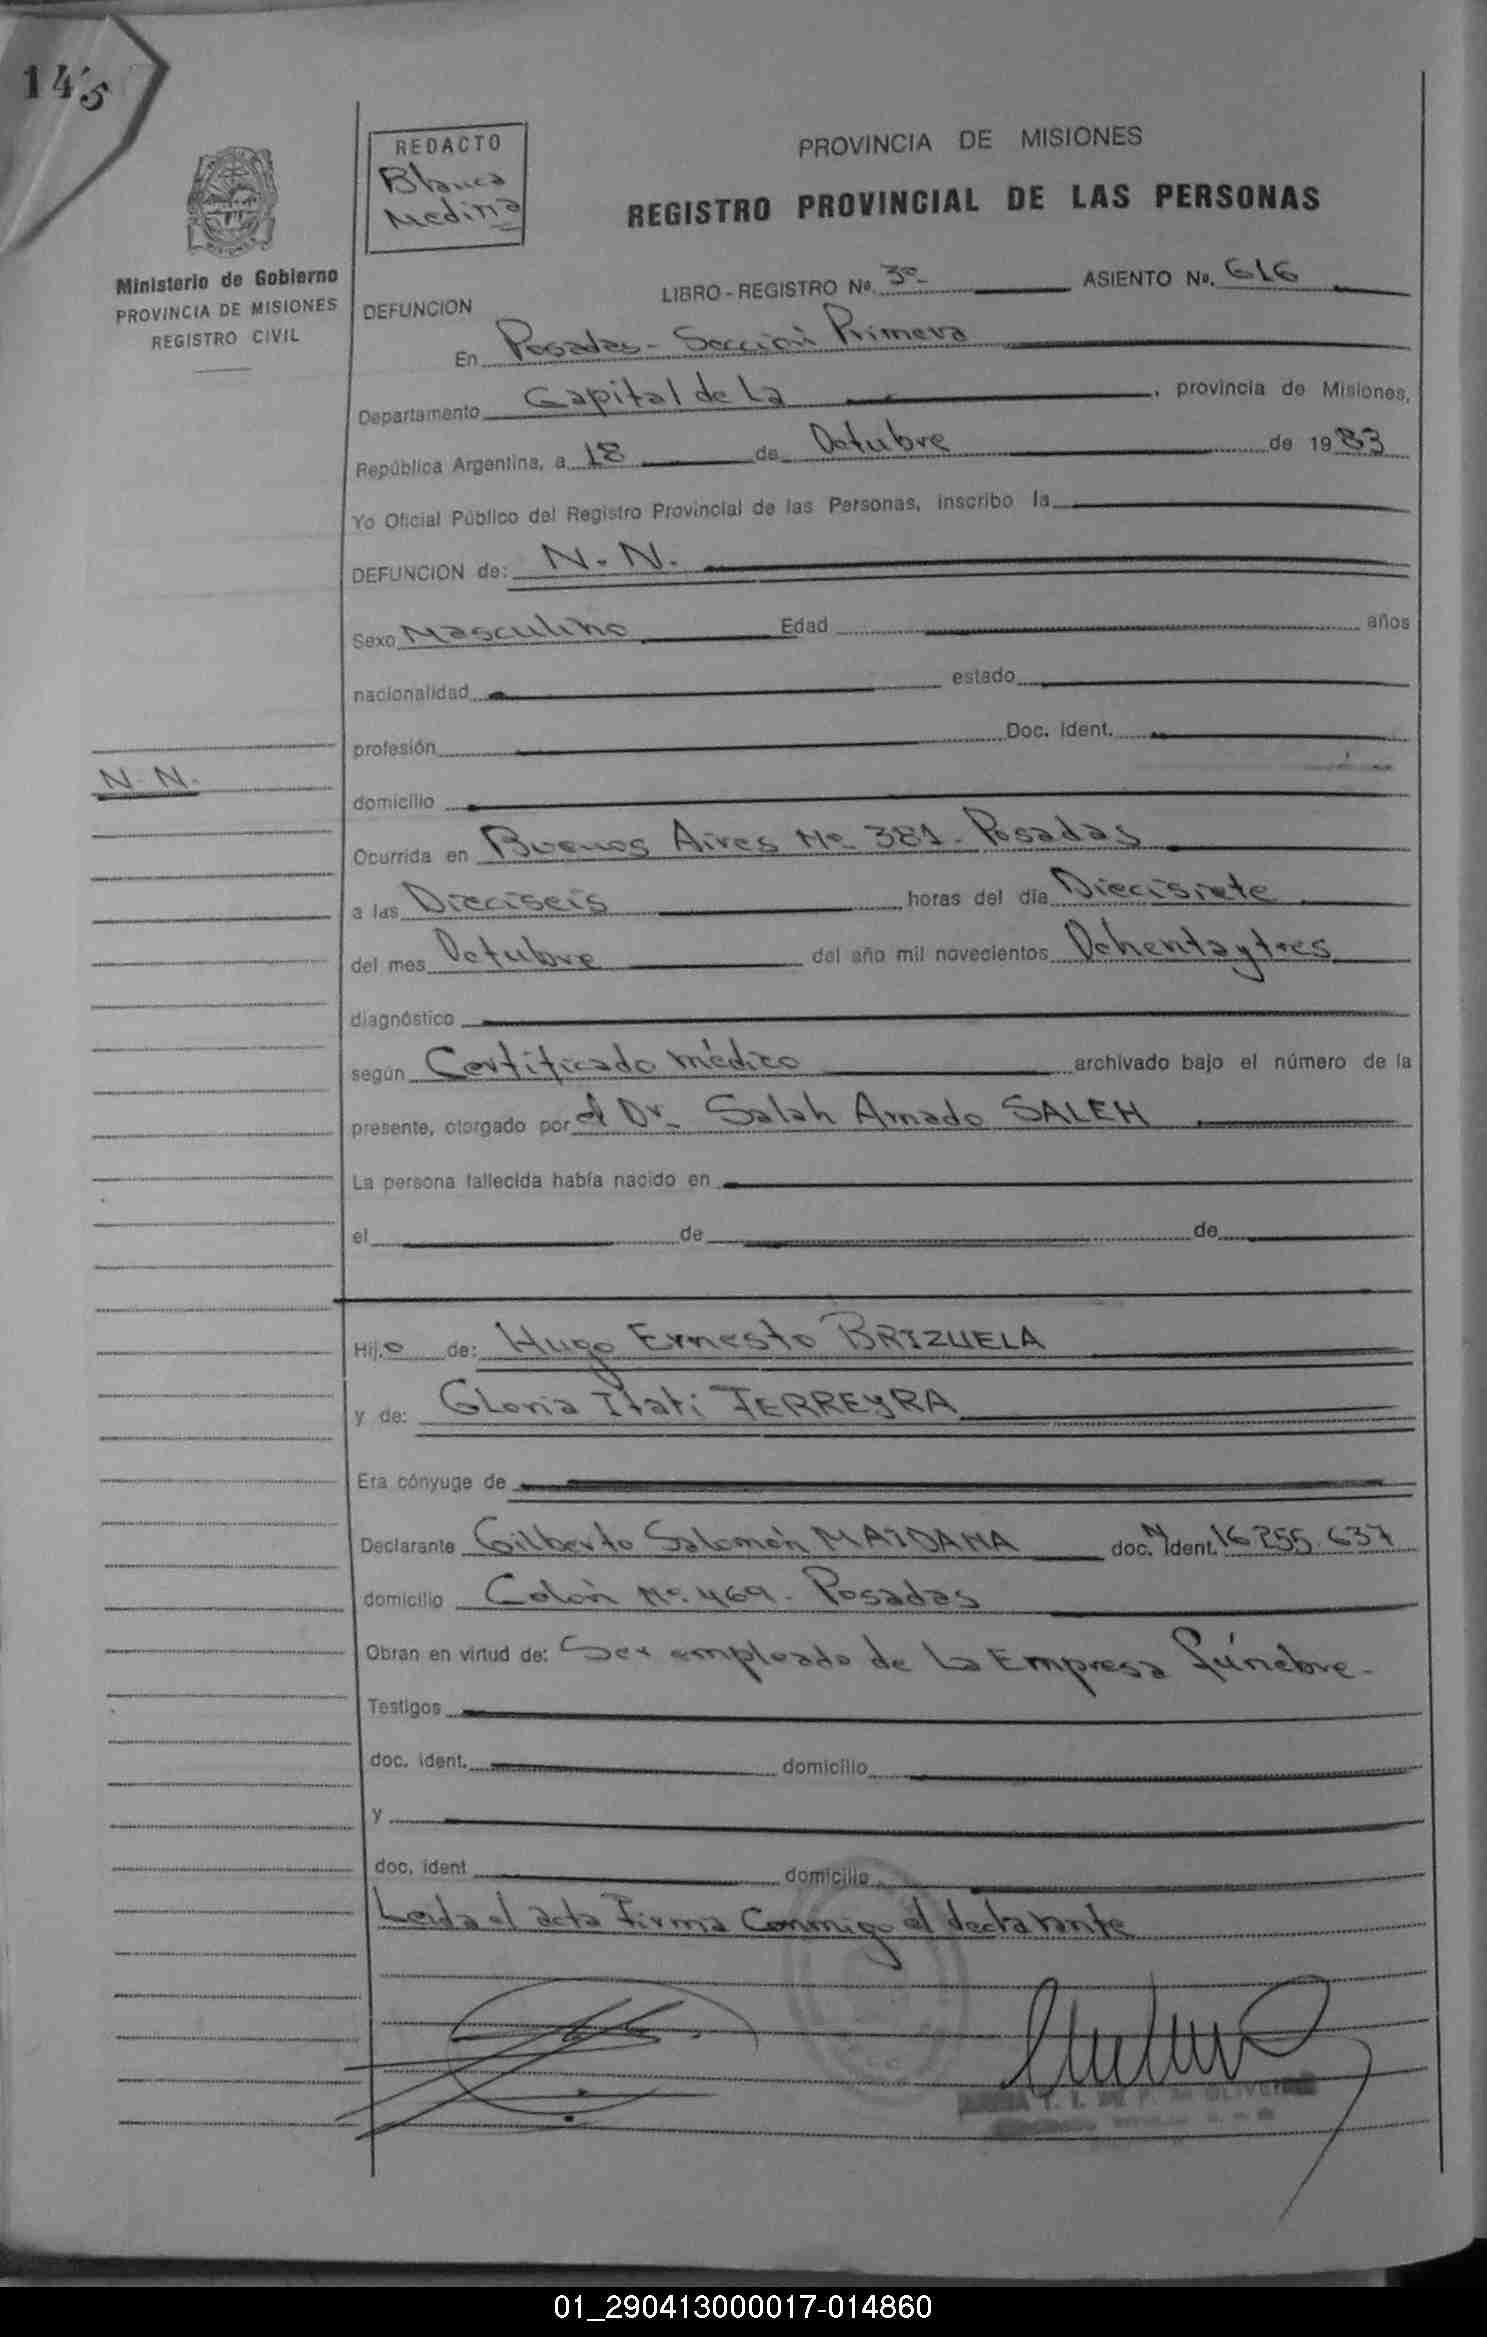 145
REDACTO
Blanca
Medina
PROVINCIA DE MISIONES
REGISTRO PROVINCIAL DE LAS PERSONAS
Ministerio de Gobierno
PROVINCIA DE MISIONES
REGISTRO CIVIL
LIBRO - REGISTRO No. 3º ASIENTO No. 616
DEFUNCION
En Posadas - Sección Primera
Departamento Capital de La , provincia de Misiones,
República Argentina, a 18 de Octubre de 1983
Yo Oficial Público del Registro Provincial de las Personas, inscribo la
DEFUNCION de: N. N.
Sexo Masculino Edad años
nacionalidad estado
profesión Doc. Ident.
N. N.
domicilio
Ocurrida en Buenos Aires Nº 381 - Posadas
a las Dieciseis horas del día Diecisiete
del mes Octubre del año mil novecientos Ochentaytres
diagnóstico
según Certificado médico archivado bajo el número de la
presente, otorgado por el Dr. Salah Amado SALEH
La persona fallecida había nacido en
el de de
Hijo de: Hugo Ernesto BRIZUELA
y de: Gloria Itati FERREYRA
Era cónyuge de
Declarante Gilberto Salomón MAIDANA doc. N ident. 16.255.637
domicilio Colón Nº 469 - Posadas
Obran en virtud de: Ser empleado de La Empresa fúnebre -
Testigos
doc. ident. domicilio
y
doc. ident domicilio
Leida el acta Firma Conmigo el declarante
01_290413000017-014860